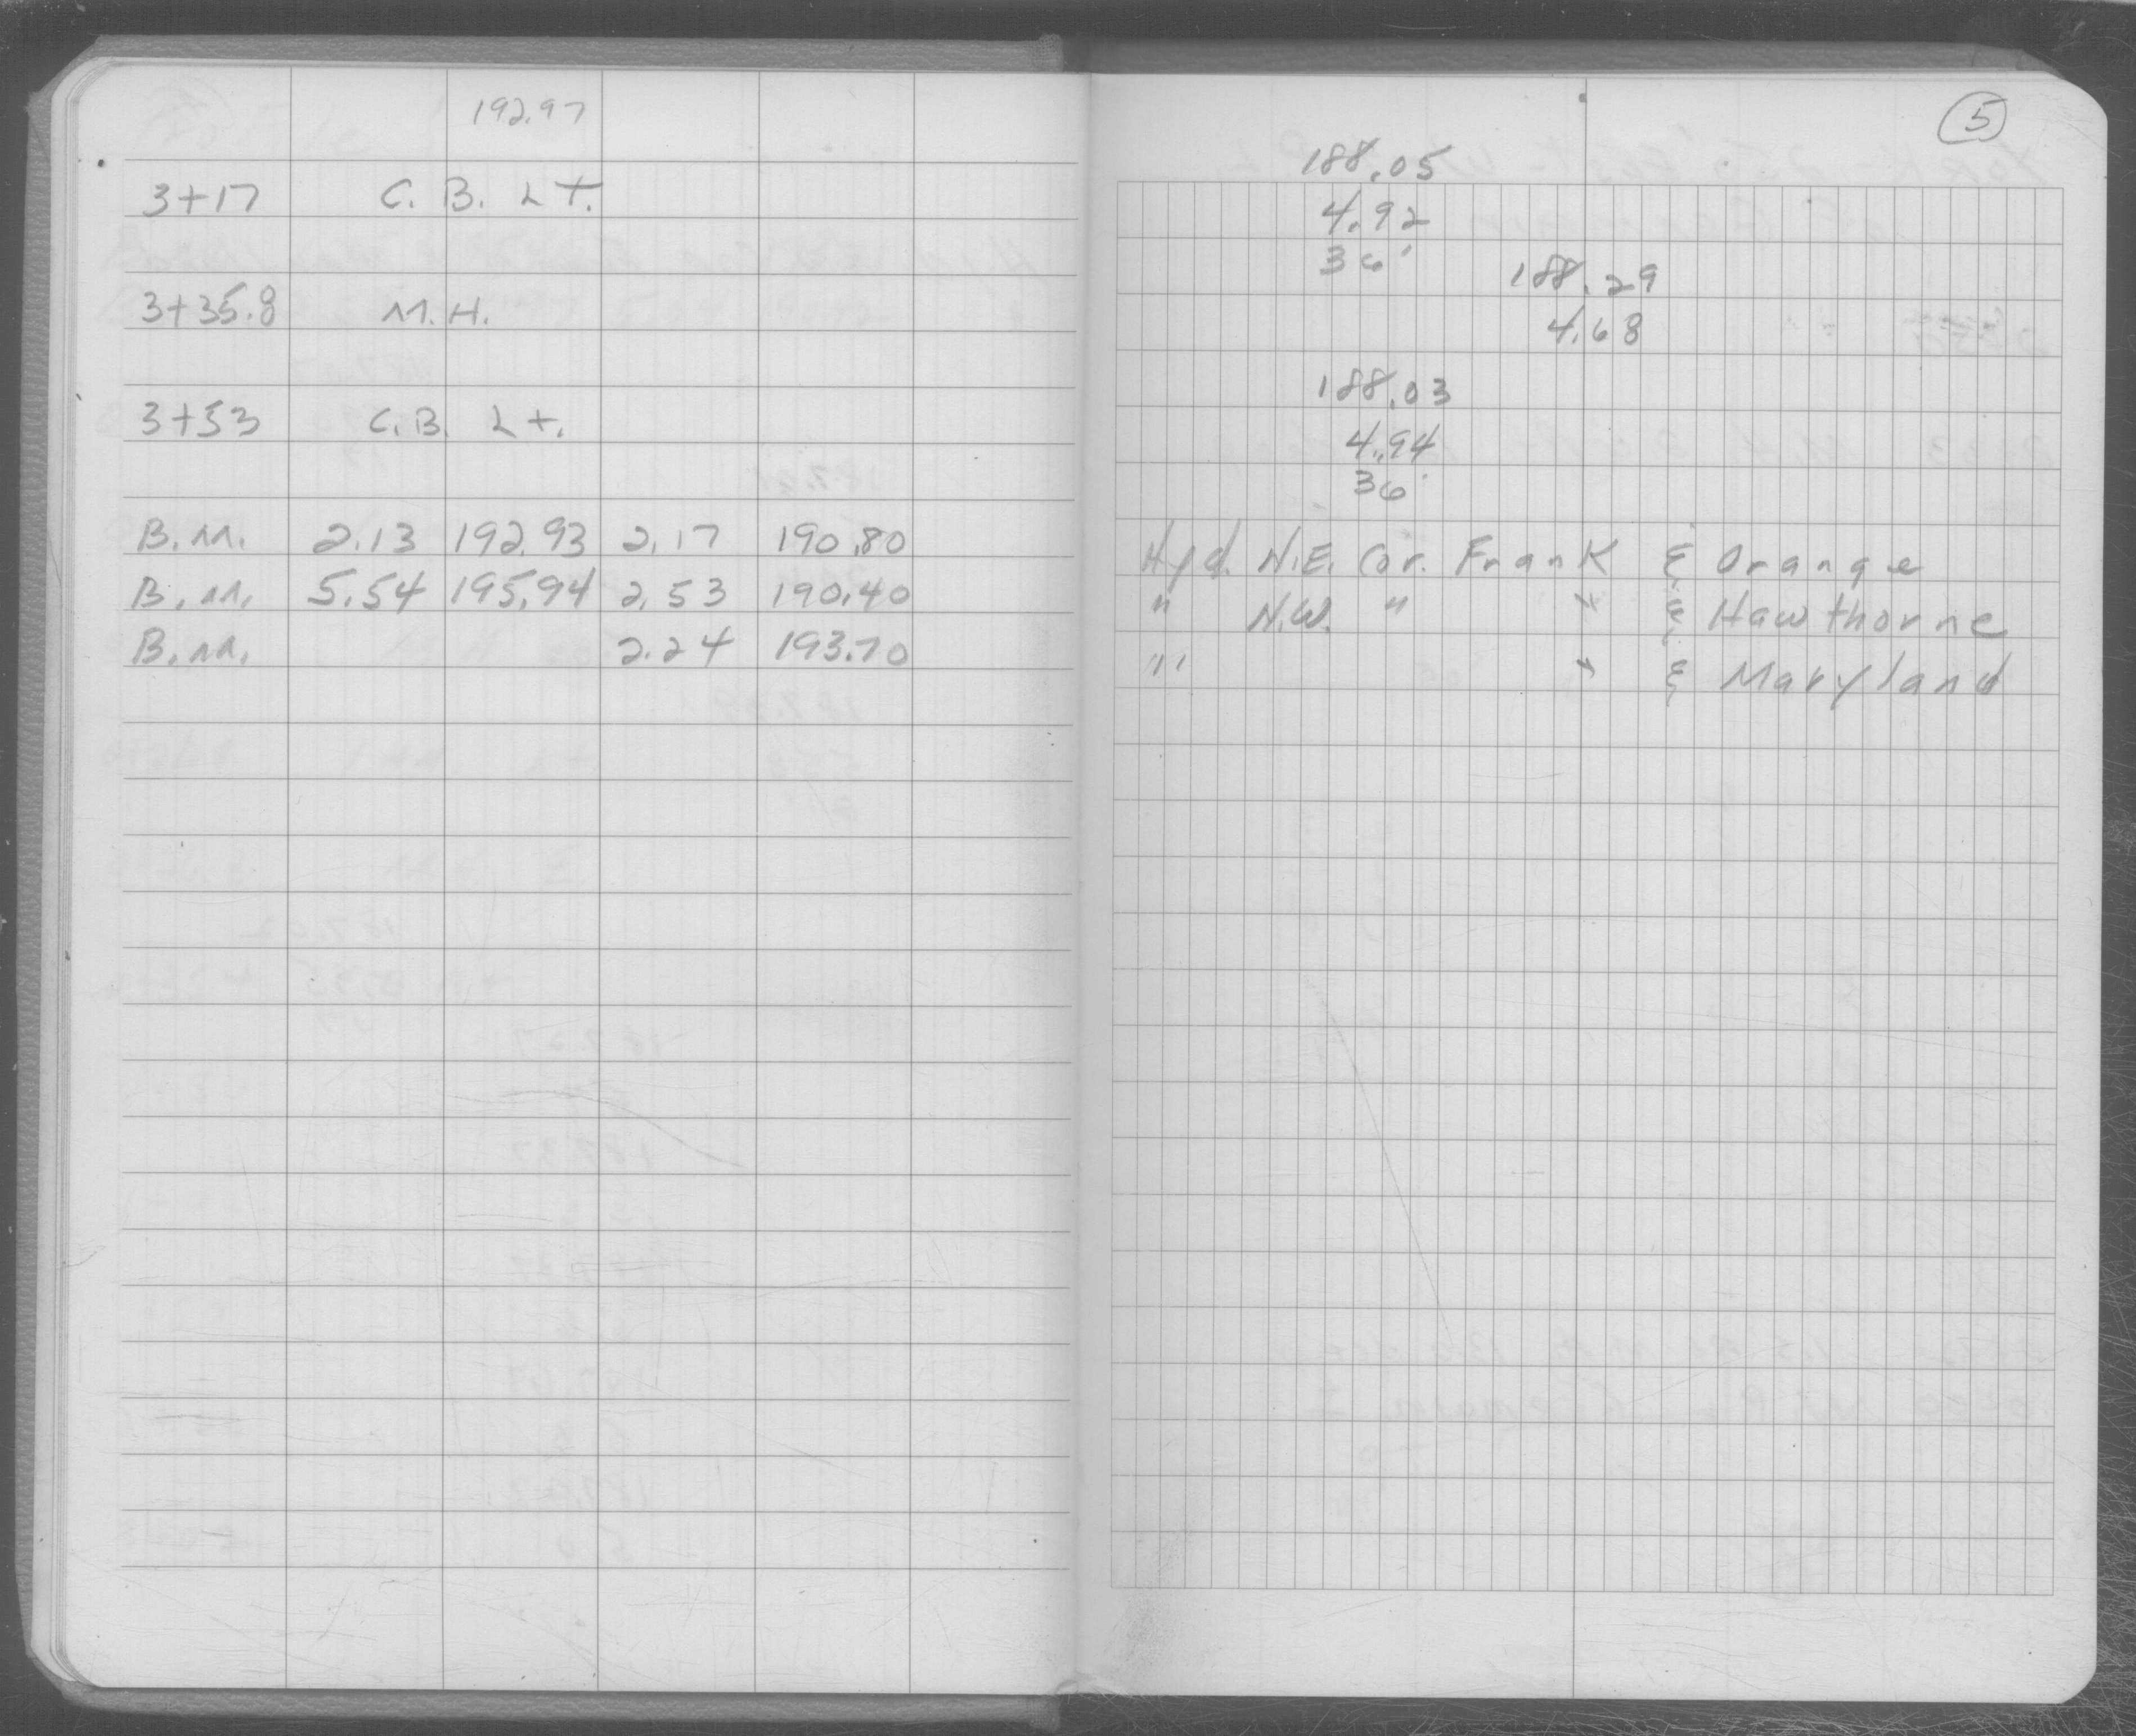 192.97
3+17 C. B. Lt.
3+35.8 M.H.
3+53 C.B. Lt.
B.M. 2.13 192.93 2.17 190.80
B.M. 5.54 195.94 2.53 190.40
B.M. 2.24 193.70
5
188.05
4.92
36'
188.29
4.68
188.03
4.94
36'
Hyd. N.E. Cor. Frank & Orange
" N.W. " " & Hawthorne
" " " & Maryland